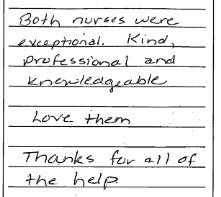 Both nurses were
exceptional. Kind,
professional and
knowledgable
Love them
Thanks for all of
the help.